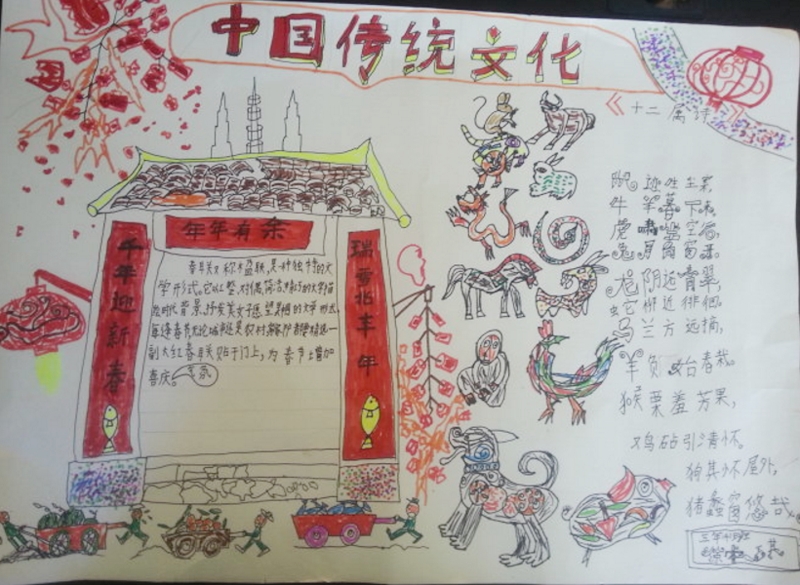 中国传统文化
年年有余
千年迎新春
瑞雪兆丰年
春联又称对联,是一种独特的文
学形式。它以工整、对偶、简洁、精巧的文字描
绘时代背景、抒发美好愿望是我国的文学形式。
每逢春节无论城市还是农村,家家户户都要精选一
副大红春联贴于门上,为春节增加
喜庆
《十二属诗
鼠迹生尘案,
牛羊暮下来,
虎啸坐空谷,
兔月向窗开,
龙阴远青翠,
蛇柳近徘徊,
马兰方远摘,
羊负始春栽。
猴栗羞芳果,
鸡砧引清怀。
狗其怀屋外,
猪蠡窗悠哉
三年